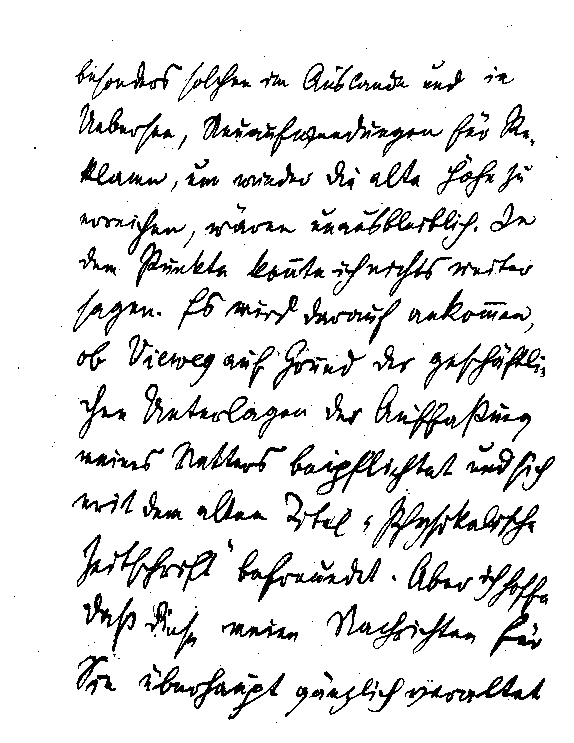 besonders solchen im Auslande und in
Uebersee, Neuaufwendungen für Re-
klamen, um wieder die alte Höhe zu
erreichen, wären unausbleiblich. In
dem Punkte konnte ich nichts weiter
sagen. Es wird darauf ankommen,
ob Vieweg auf Grund der geschäftli-
chen Unterlagen der Auffaßung
meines Vetters beipflichtet und sich
mit dem alten Titel „Physikalische
Zeitschrift" befreundet. Aber ich hoffe
daß diese meine Nachrichten für
Sie überhaupt gänzlich veraltet